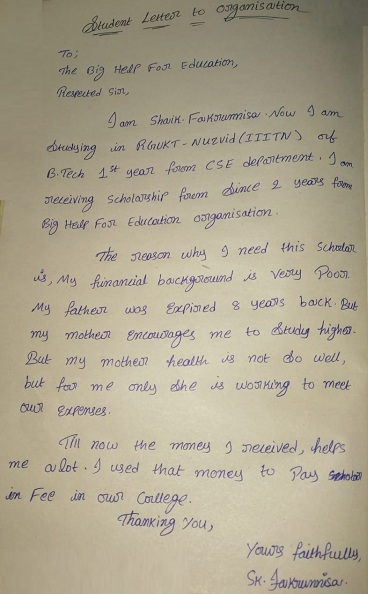 Student Letter to organisation
To;
The Big Help For Education,
Respected Sir,
I am Shaik. Fakrunnisa. Now I am
studying in RGUKT-Nuzvid (IIITN) of
B.Tech 1st year from CSE department. I am
receiving scholarship from since 2 years from
Big Help For Education organisation.
The reason why I need this scholar
is, My financial background is very Poor.
My father was Expired 8 years back. But
my mother Encourages me to study higher.
But my mother health is not so well,
but for me only she is working to meet
our Expenses.
Till now the money I received, helps
me a lot. I used that money to Pay
in Fee in our College.
Thanking You,
Yours faithfully,
Sk. Fakrunnisa.